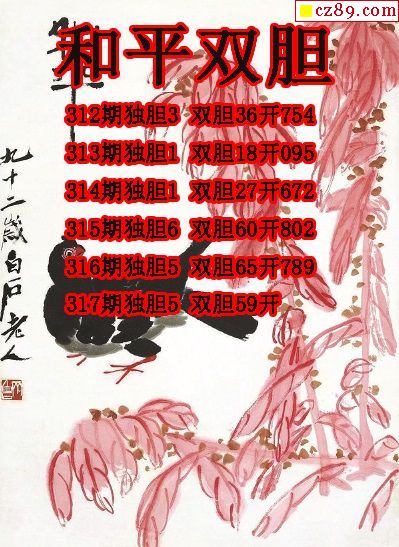 cz89.com
和平双胆
312期独胆3 双胆36开754
313期独胆1 双胆18开095
314期独胆1 双胆27开672
315期独胆6 双胆60开802
316期独胆5 双胆65开789
317期独胆5 双胆59开
九十二岁白石老人